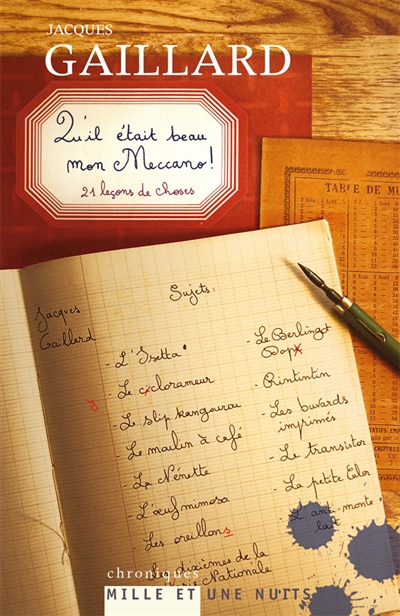 JACQUES
GAILLARD
Qu'il était beau
mon Meccano!
21 leçons de choses
TABLE DE MU
Sujets:
Jacques
Gaillard
- L'Isetta
- Le ciclorameur
y
- Le slip kangourou
- Le moulin à café
- La Nénette
- L'œuf mimosa
- Les oreillons
- Les dixièmes de la
Nationale
- Le Berlingot
Dop
- Rintintin
- Les buvards
imprimés
- Le transistor
- La petite Calor
- L'anti-monte
lait
chroniques
MILLE ET UNE NUITS